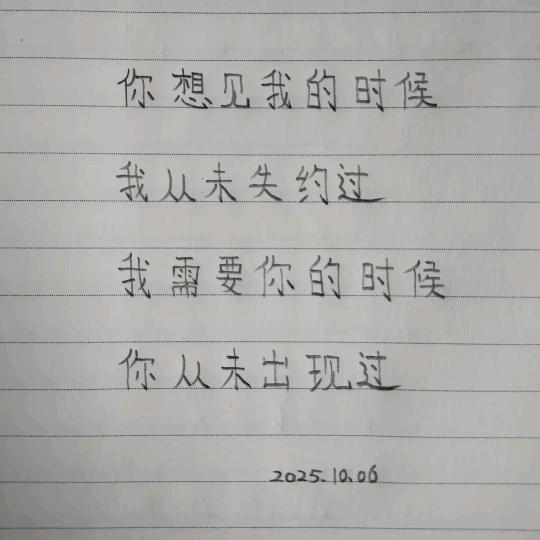 你想见我的时候
我从未失约过
我需要你的时候
你从未出现过
2025.10.06